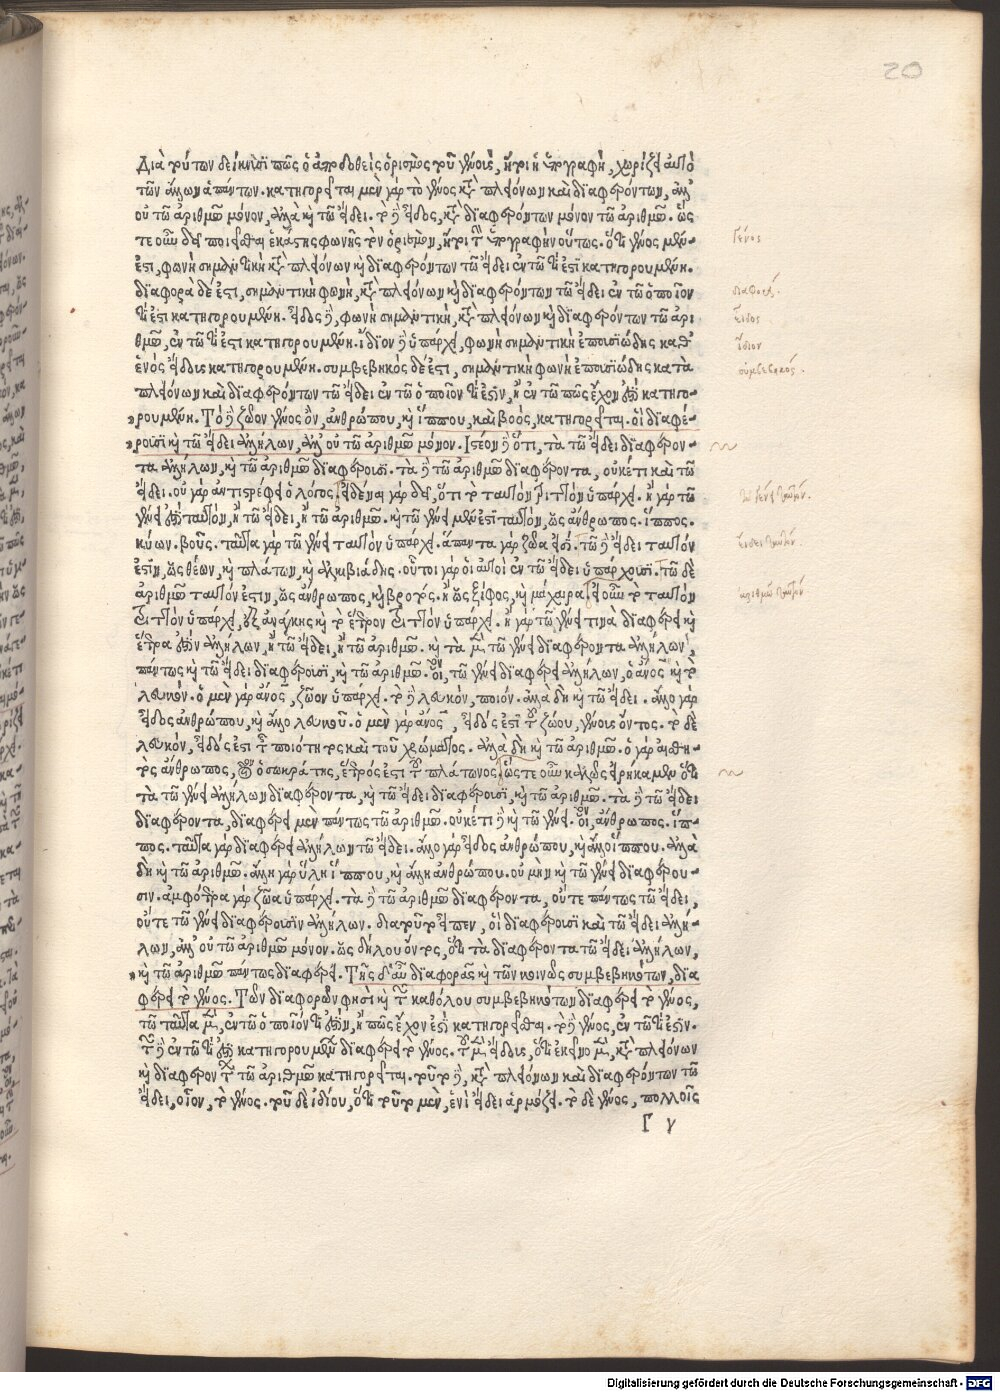 20
Διὰ τούτων δείκνυσι πῶς ὁ ἀποδοθεὶς ὁρισμὸς τοῦ γένους, ἤτοι ἡ ὑπογραφὴ, χωρίζει αὐτὸ
τῶν ἄλλων ἁπάντων. κατηγορεῖται μὲν γὰρ τὸ γένος κατὰ πλειόνων καὶ διαφερόντων, ἀλλ'
οὐ τῶ ἀριθμῶ μόνον, ἀλλὰ καὶ τῶ εἴδει. τὸ δὲ εἶδος, κατὰ διαφερόντων μόνον τῶ ἀριθμῶ. ὥς
τε οὖν δεῖ ποιεῖσθαι ἑκάστης φωνῆς τὸν ὁρισμὸν, ἤτοι τὴν ὑπογραφὴν οὕτως. ὅτι γένος μέν
ἐστι, φωνὴ σημαντικὴ κατὰ πλειόνων καὶ διαφερόντων τῶ εἴδει ἐν τῶ τί ἐστι κατηγορουμένη.
διαφορὰ δέ ἐστι, σημαντικὴ φωνὴ, κατὰ πλειόνων καὶ διαφερόντων τῶ εἴδει ἐν τῶ ὁποῖον
τί ἐστι κατηγορουμένη. εἶδος δὲ, φωνὴ σημαντικὴ, κατὰ πλειόνων καὶ διαφερόντων τῶ ἀρι
θμῶ, ἐν τῶ τί ἐστι κατηγορουμένη. ἴδιον δὲ ὑπάρχει, φωνὴ σημαντικὴ ἐπουσιώδης καθ'
ἑνὸς εἴδους κατηγορουμένη. συμβεβηκὸς δέ ἐστι, σημαντικὴ φωνὴ ἐπουσιώδης κατὰ
πλειόνων καὶ διαφερόντων τῶ εἴδει ἐν τῶ ὁποῖον τί ἐστιν, ἢ ἐν τῶ πῶς ἔχον ἐστὶ κατηγο-
ρουμένη. Τὸ δὲ ζῶον γένος ὂν, ἀνθρώπου, καὶ ἵππου, καὶ βοὸς, κατηγορεῖται. οἱ διαφέ-
ρουσι καὶ τῶ εἴδει ἀλλήλων, ἀλλ' οὐ τῶ ἀριθμῶ μόνον. Ἰστέον δὲ ὅτι, τὰ τῶ εἴδει διαφέρον-
τα ἀλλήλων, καὶ τῶ ἀριθμῶ διαφέρουσι. τὰ δὲ τῶ ἀριθμῶ διαφέροντα, οὐκέτι καὶ τῶ
εἴδει. οὐ γὰρ ἀντιστρέφει ὁ λόγος. εἰδέναι γὰρ δεῖ, ὅτι τὸ ταυτὸν τριττὸν ὑπάρχει. ἢ γὰρ τῶ
γένει ἐστὶ ταυτὸν, ἢ τῶ εἴδει, ἢ τῶ ἀριθμῶ. καὶ τῶ γένει μέν ἐστι ταυτὸν, ὡς ἄνθρωπος. ἵππος.
κύων. βοῦς. ταῦτα γὰρ τῶ γένει ταυτὸν ὑπάρχει. ἅπαντα γὰρ ζῶα εἰσί. τῶ δὲ εἴδει ταυτόν
ἐστιν, ὡς θέων, καὶ πλάτων, καὶ ἀλκιβιάδης. οὗτοι γὰρ οἱ αὐτοὶ ἐν τῶ εἴδει ὑπάρχουσι. τῶ δὲ
ἀριθμῶ ταυτόν ἐστιν, ὡς ἄνθρωπος, καὶ βροτός. ἢ ὡς ξίφος, καὶ μάχαιρα. εἰ οὖν τὸ ταυτὸν
τριττὸν ὑπάρχει, ἐξ ἀνάγκης καὶ τὸ ἕτερον τριττὸν ὑπάρχει. ἢ γὰρ τῶ γένει τινὰ διαφέρει καὶ
ἕτερα ἐστὶν ἀλλήλων, ἢ τῶ εἴδει, ἢ τῶ ἀριθμῶ. καὶ τὰ μὲν τῶ γένει διαφέροντα ἀλλήλων,
πάντως καὶ τῶ εἴδει διαφέρουσι, καὶ τῶ ἀριθμῶ. οἷον, τῶ γένει διαφέρει ἀλλήλων, ὁ ἄνος καὶ τὸ
λευκόν. ὁ μὲν γὰρ ἄνος, ζῶον ὑπάρχει. τὸ δὲ λευκὸν, ποιόν. ἀλλὰ δὴ καὶ τῶ εἴδει. ἄλλο γὰρ
εἶδος ἀνθρώπου, καὶ ἄλλο λευκοῦ. ὁ μὲν γὰρ ἄνος, εἶδός ἐστι τοῦ ζώου, γένους ὄντος. τὸ δὲ
λευκὸν, εἶδός ἐστι τῆς ποιότητος καὶ τοῦ χρώματος. ἀλλὰ δὴ καὶ τῶ ἀριθμῶ. ὁ γὰρ αἰσθη-
τὸς ἄνθρωπος, ὁ σωκράτης, ἕτερός ἐστι τοῦ πλάτωνος. ὥστε οὖν καλῶς εἰρήκαμεν ὅτι
τὰ τῶ γένει ἀλλήλων διαφέροντα, καὶ τῶ εἴδει διαφέρουσι, καὶ τῶ ἀριθμῶ. τὰ δὲ τῶ εἴδει
διαφέροντα, διαφέρει μὲν πάντως τῶ ἀριθμῶ. οὐκέτι δὲ καὶ τῶ γένει. οἷον, ἄνθρωπος. ἵπ-
πος. ταῦτα γὰρ διαφέρει ἀλλήλων τῶ εἴδει. ἄλλο γὰρ εἶδος ἀνθρώπου, καὶ ἄλλο ἵππου. ἀλλὰ
δὴ καὶ τῶ ἀριθμῶ. ἄλλη γὰρ ὕλη ἵππου, καὶ ἄλλη ἀνθρώπου. οὐ μὴν καὶ τῶ γένει διαφέρου-
σιν. ἀμφότερα γὰρ ζῶα ὑπάρχει. τὰ δὲ τῶ ἀριθμῶ διαφέροντα, οὔτε πάντως τῶ εἴδει,
οὔτε τῶ γένει διαφέρουσιν ἀλλήλων. διὰ τοῦτο εἶπεν, οἱ διαφέρουσι καὶ τῶ εἴδει ἀλλή-
λων, ἀλλ' οὐ τῶ ἀριθμῶ μόνον. ὡς δήλου ὄντος, ὅτι τὰ διαφέροντα τῶ εἴδει ἀλλήλων,
καὶ τῶ ἀριθμῶ πάντως διαφέρει. Τῆς δ' αὖ διαφορᾶς καὶ τῶν κοινῶς συμβεβηκότων, δια
φέρει τὸ γένος. Τῶν διαφορῶν φησὶ καὶ τῶν καθόλου συμβεβηκότων διαφέρει τὸ γένος,
τῶ ταῦτα μὲν, ἐν τῶ ὁποῖόν τί ἐστιν, ἢ πῶς ἔχον ἐστὶ κατηγορεῖσθαι. τὸ δὲ γένος, ἐν τῶ τί ἐστιν.
τῶν δὲ ἐν τῶ τί ἐστὶ κατηγορουμένων διαφέρει τὸ γένος. τοῦ μὲν εἴδους, ὅτι ἐκεῖνο μὲν, κατὰ πλειόνων
καὶ διαφερόντων τῶ ἀριθμῶ κατηγορεῖται. τοῦτο δὲ, κατὰ πλειόνων καὶ διαφερόντων τῶ
εἴδει, οἷον, τὸ γένος. τοῦ δὲ ἰδίου, ὅτι τοῦτο μὲν, ἑνὶ εἴδει ἁρμόζει. τὸ δὲ γένος, πολλοῖς
Γ γ
Γένος
διαφορά.
εἶδος
ἴδιον
συμβεβηκός.
τῶ γένει ταυτόν.
εἴδει ταυτόν.
ἀριθμῶ ταυτόν
Digitalisierung gefördert durch die Deutsche Forschungsgemeinschaft - DFG